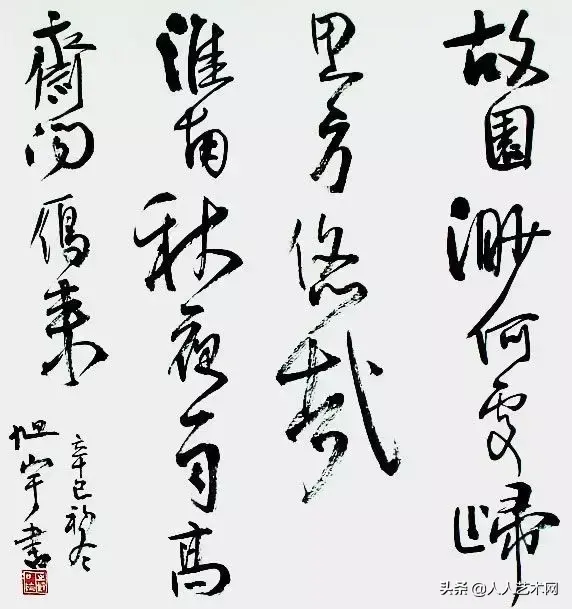 故園渺何處歸
思方悠哉
淮南秋夜雨高
齋聞鴈來
辛巳初冬
旭宇書
头条 @人人艺术网